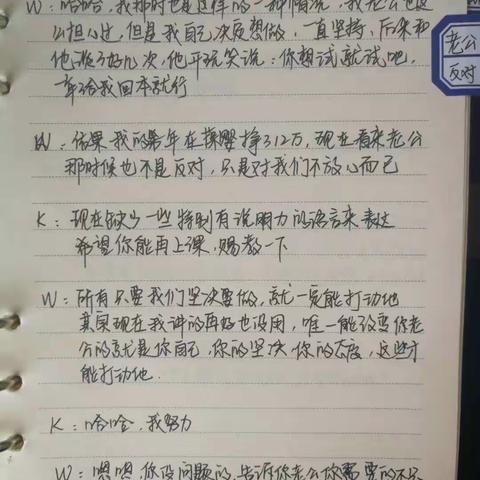 W：哈哈，我那时也是这样的一种情况，我老公也这
么担心过，但是我自己决定想做，一直坚持，后来和
他说了好几次，他开玩笑说：你想试就试吧，
年给我回本就行
老公
反对
W：结果我的第一年在 挣了12万，现在看来老公
那时候也不是反对，只是对我们不放心而已
K：现在缺少一些特别有说服力的语言来表达
希望你能再上课，赐教一下
W：所有只要我们坚决要做，就一定能打动他
其实现在我讲的再好也没用，唯一能改变你老
公的就是你自己，你的坚决，你的态度，这些才
能打动他．
K：哈哈，我努力
W：嗯嗯，你没问题的，告诉你老公你需要的不只